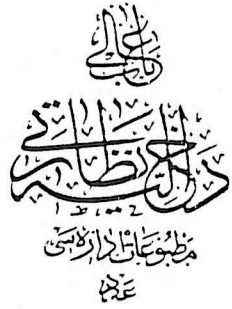 باب عالی
داخلیه نظارتی
مطبوعات اداره سی
عدد